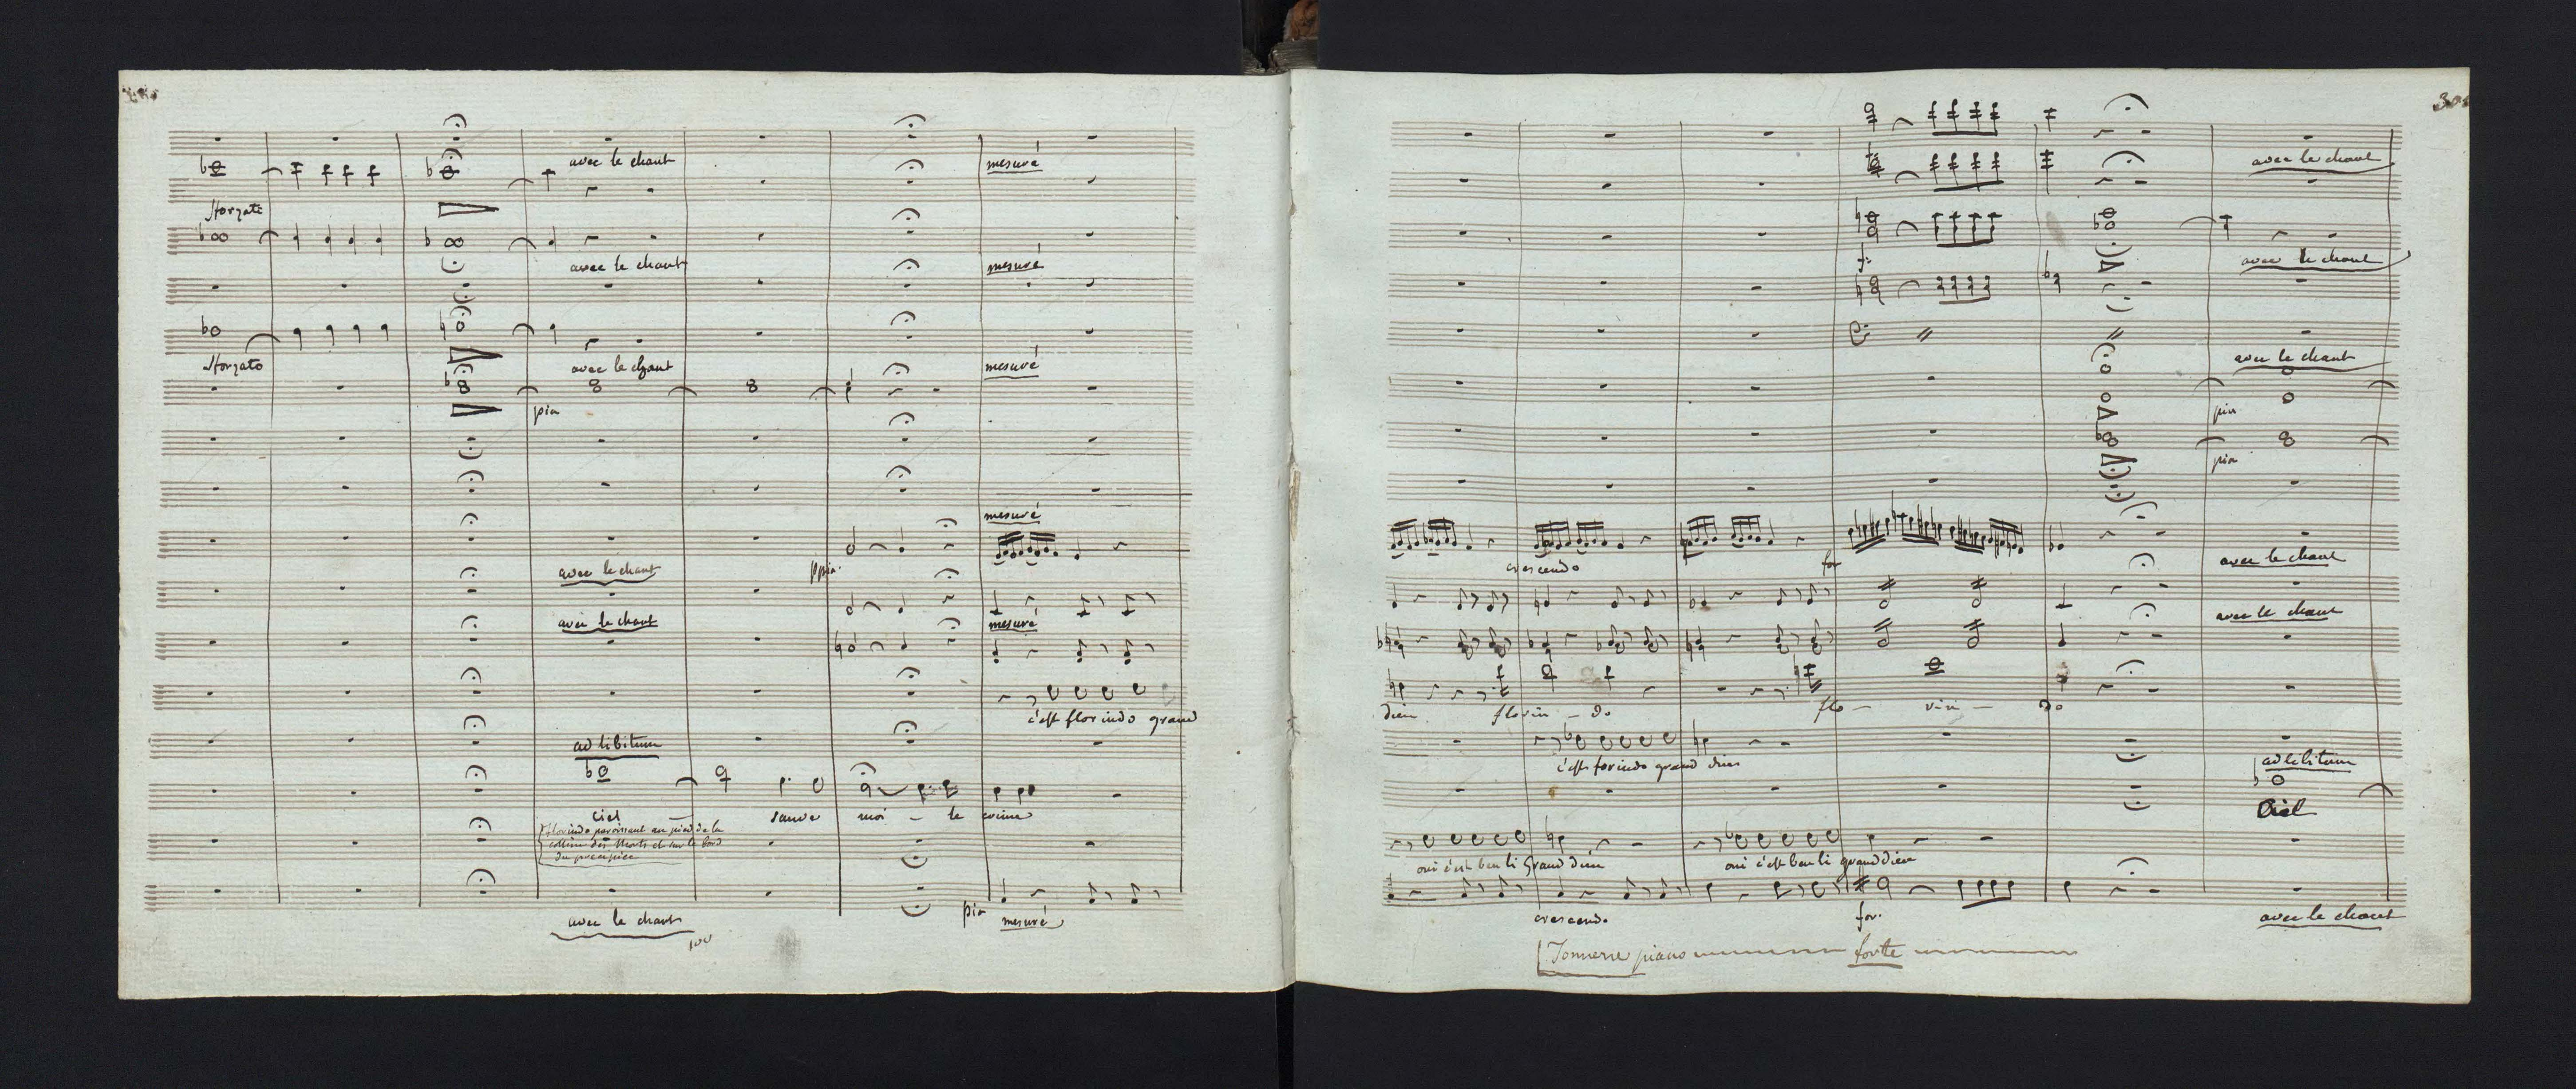 avec le chant
mesuré
sforzati
avec le chant
mesuré
sforzato
avec le chant
mesuré
pia
mesuré
avec le chant
ppia.
avec le chant
mesuré
c'est florindo grand
ad libitum
ciel — sauve moi — le crime
florindo paroissant au pied de la
colline des morts et sur le bord
du precipice
avec le chant
pia mesuré
100
30
avec le chant
f.
avec le chant
avec le chant
pia
pia
crescendo
for
avec le chant
avec le chant
dieu florin — do flo — rin — do
c'est forindo grand dieu
ad libitum
Ciel
oui c'est ben li grand dieu oui c'est ben li grand dieu
crescendo for.
avec le chant
Tonnerre piano fortte